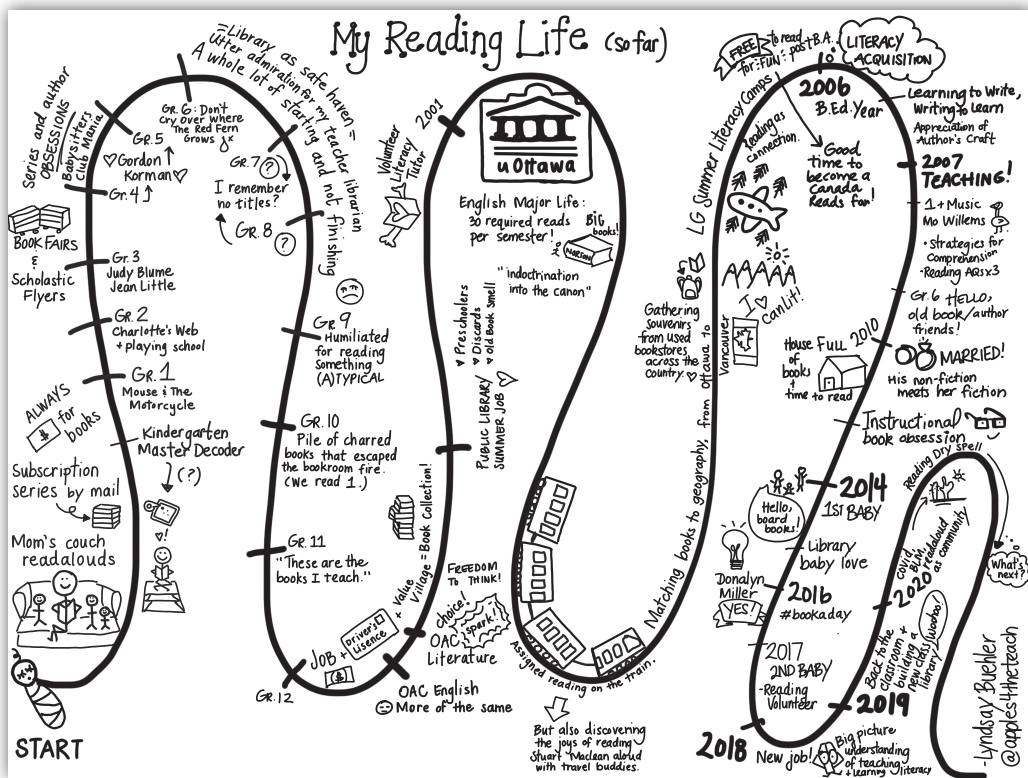 My Reading Life (so far)
START
Mom's couch
readalouds
Subscription
series by mail
Kindergarten
Master Decoder
(?)
ALWAYS
$
for
books
Gr. 1
Mouse & The
Motorcycle
Gr. 2
Charlotte's Web
+ playing school
Gr. 3
Judy Blume
Jean Little
BOOK FAIRS
&
Scholastic
Flyers
Gr. 4
Series and author
OBSESSIONS
Babysitters
Club Mania
Gr. 5
Gordon
Korman
GR. 6: Don't
cry over where
The Red Fern
Grows
Library as safe haven
Utter admiration for my teacher librarian
A whole lot of starting and not finishing
GR. 7 ?
I remember
no titles?
GR. 8 ?
Gr. 9
Humiliated
for reading
something
(A)TYPICAL
GR. 10
Pile of charred
books that escaped
the bookroom fire.
(We read 1.)
Gr. 11
"These are the
books I teach."
Gr. 12
JOB + Driver's Lisence + Value Village = Book Collection!
$
OAC English
More of the same
OAC
Literature
choice!
spark!
FREEDOM
TO THINK!
PUBLIC LIBRARY
SUMMER JOB
Preschoolers
Discards
old Book smell
Volunteer
Literacy
Tutor
2001
u Ottawa
English Major Life:
30 required reads
per semester!
Big
books!
NORTON
"indoctrination
into the canon"
Assigned reading on the train.
But also discovering
the joys of reading
Stuart Maclean aloud
with travel buddies.
Matching books to geography, from Ottawa to Vancouver
Gathering
souvenirs
from used
bookstores
across the
country.
I
CanLit!
LG Summer Literacy Camps
Reading as
connection.
FREE to read
for :FUN: post B.A.
Good
time to
become a
Canada
Reads fan!
LITERACY
ACQUISITION
2006
B.Ed. Year
Learning to Write,
Writing to Learn
Appreciation of
Author's Craft
2007
TEACHING!
1 + Music
Mo Willems
Strategies for
Comprehension
Reading AQs x3
Gr. 6 HELLO,
old book/author
friends!
2010
MARRIED!
His non-fiction
meets her fiction
House FULL
of
books
+
time to read
Instructional
book obsession
2014
1ST BABY
Hello,
board
books!
Library
baby love
Donalyn
Miller
YES!
2016
#bookaday
2017
2ND BABY
-Reading
Volunteer
2018 New job!
Big picture
understanding
of teaching
+ learning literacy
2019
Back to the
classroom +
building a
new class
library
(woohoo!)
2020
Covid
BLM
readaloud
as community
Reading Dry Spell
What's
next?
-Lyndsay Buehler
@apples4theteach